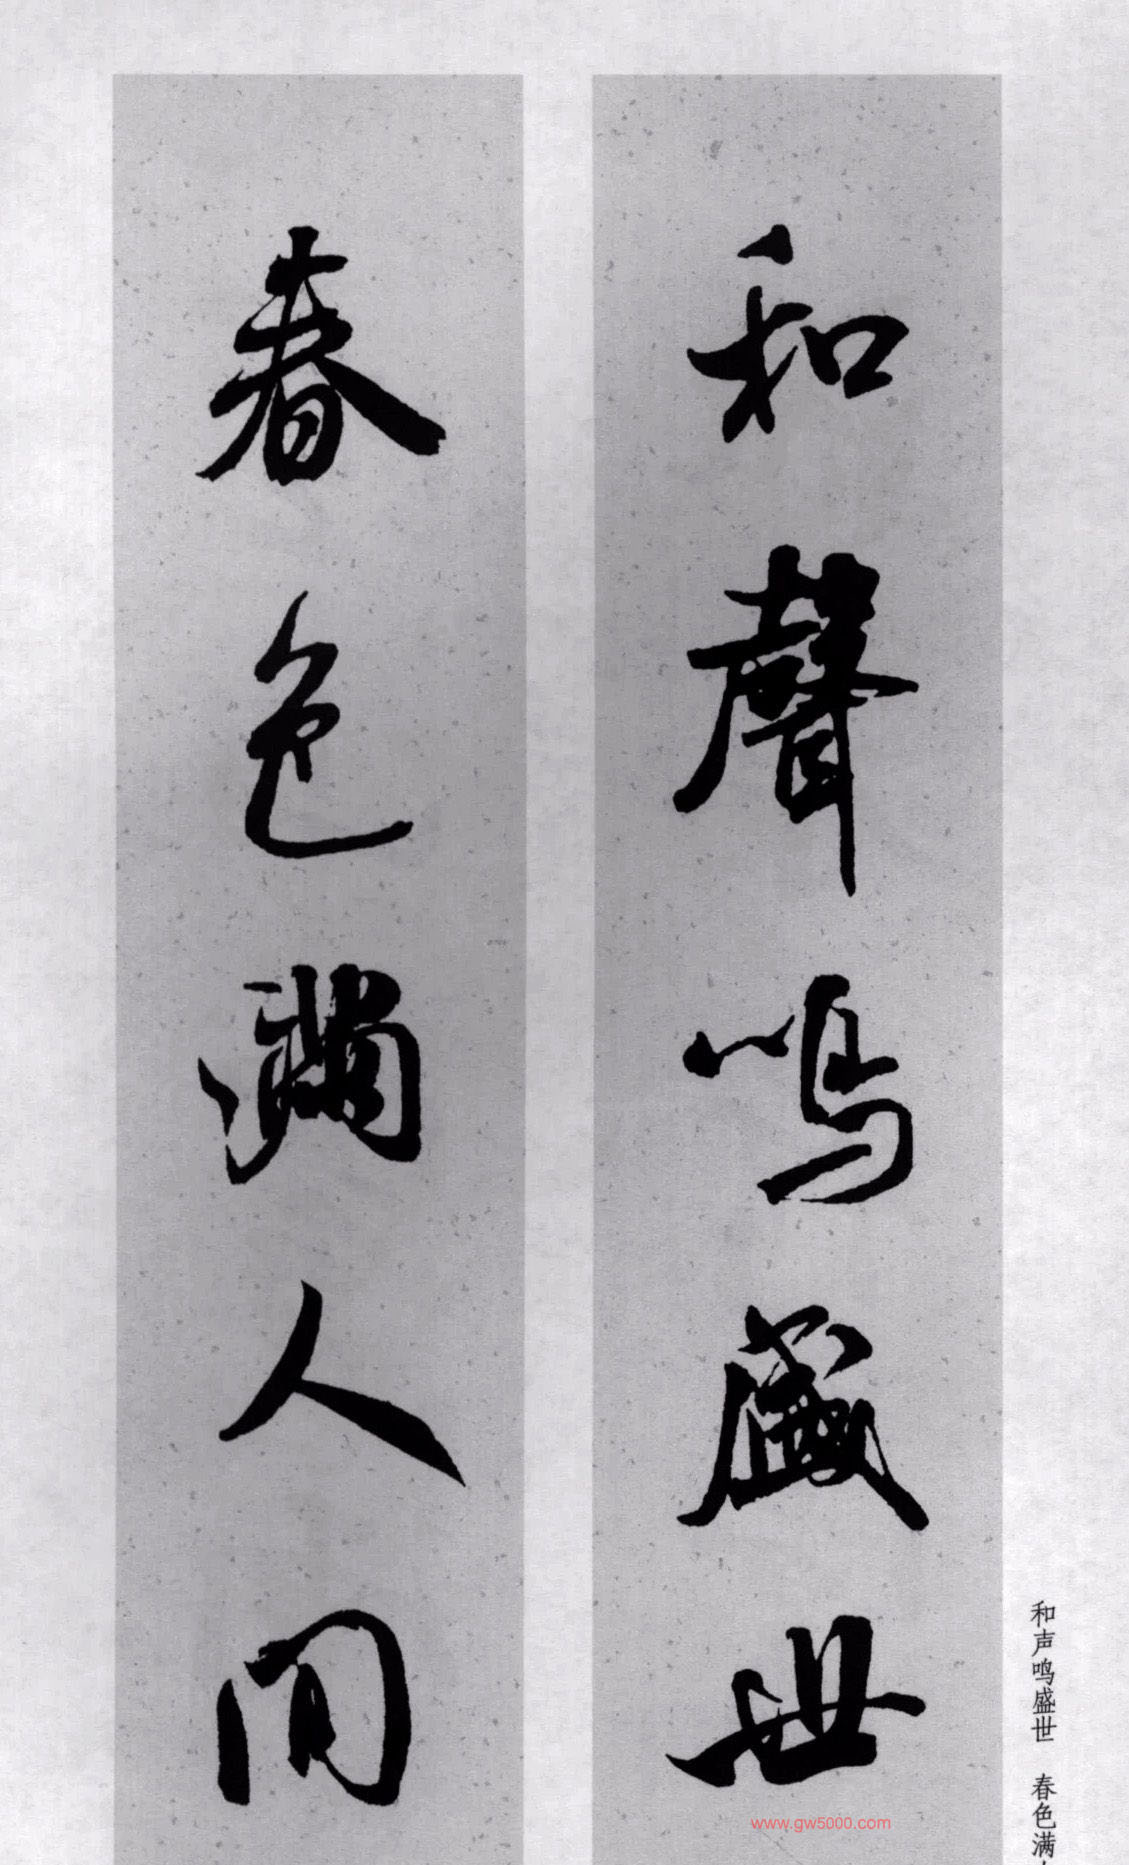 和聲鳴盛世
春色滿人間
和声鸣盛世 春色满
www.gw5000.com